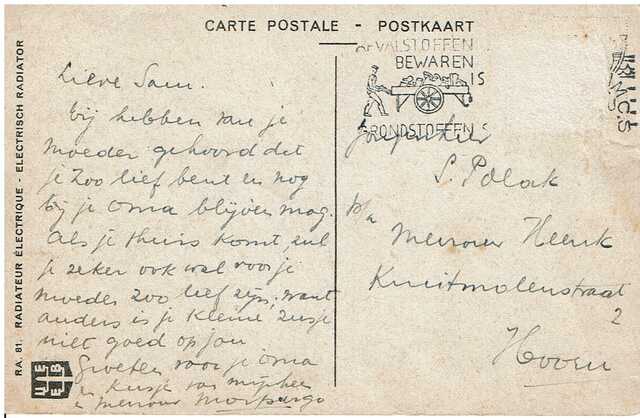 CARTE POSTALE - POSTKAART
RA. 81. RADIATEUR ÉLECTRIQUE - ELECTRISCH RADIATOR
AFVALSTOFFEN
BEWAREN
IS
GRONDSTOFFEN S
Lieve Sam.
Wij hebben van je
moeder gehoord dat
je zoo lief bent en nog
bij je Oma blijven mag.
Als je thuis komt, zul
je zeker ook wel voor je
moeder zoo lief zijn, want
anders is je kleine zusje
niet goed op jou
Groeten voor je Oma
en kusje van mijnheer
en mevrouw Morpurgo
Jongenheer
S. Polak
p/a
Mevrouw Henk
Kruitmolenstraat
2
Hoorn